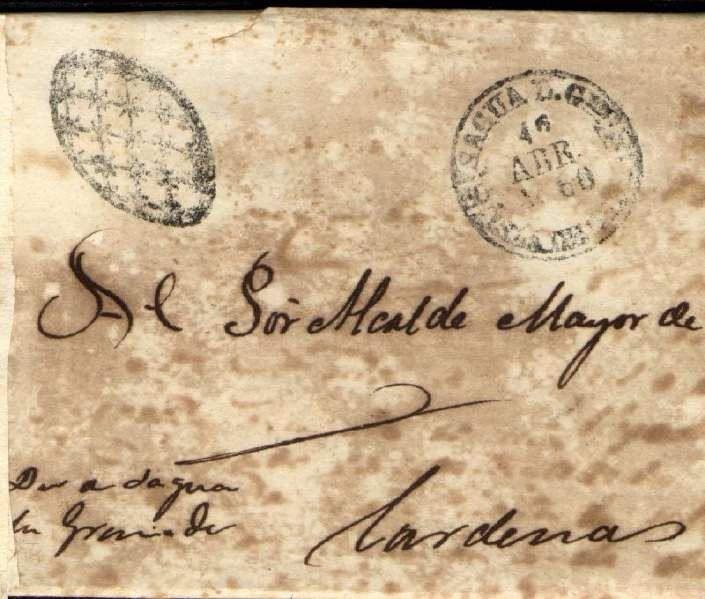 SAGUA L. G
16
ABR.
60
Al Sor Alcalde Mayor de
Cardenas
a Sagua
la Grande